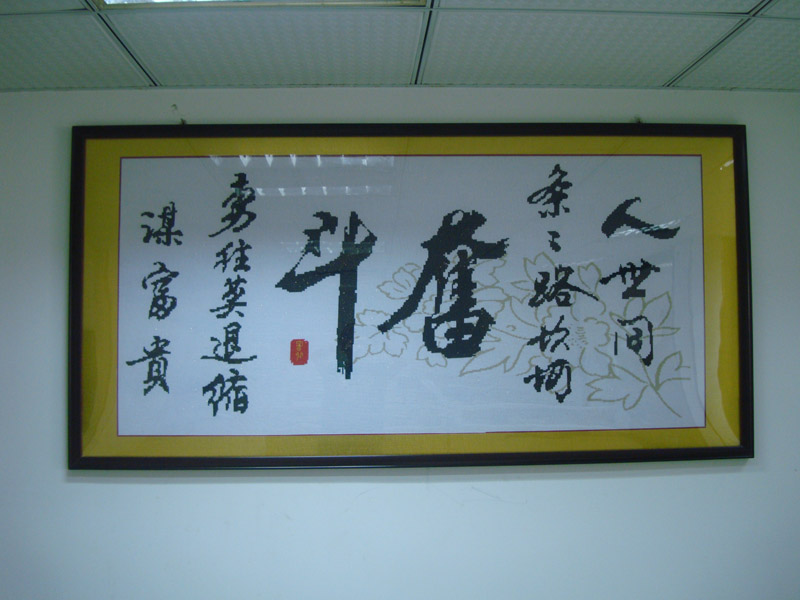 人世间
条々路坎坷
奮
斗
勇往莫退缩
谋富貴